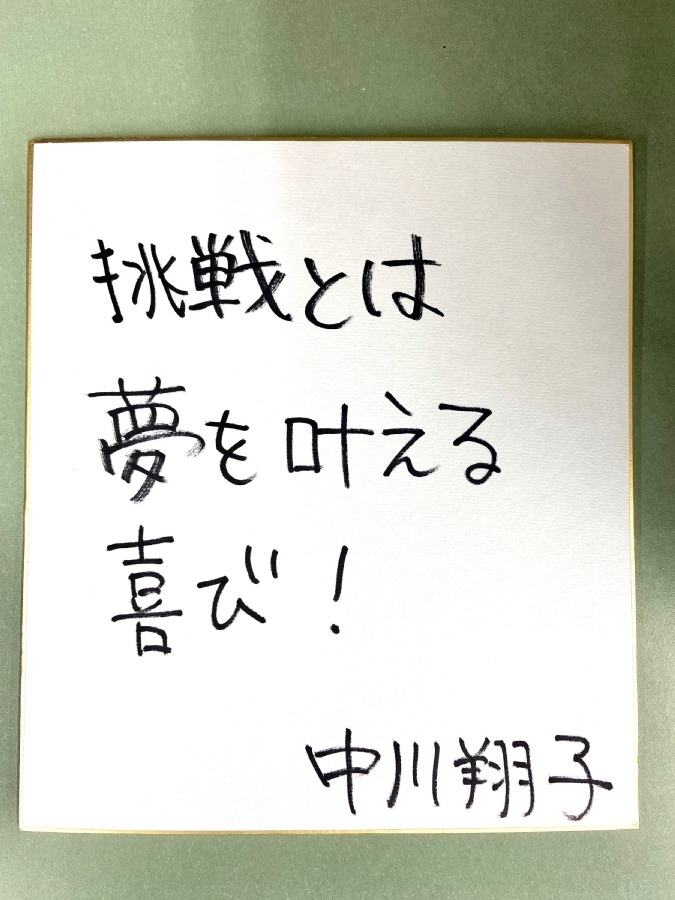 挑戦とは
夢を叶える
喜び!
中川翔子